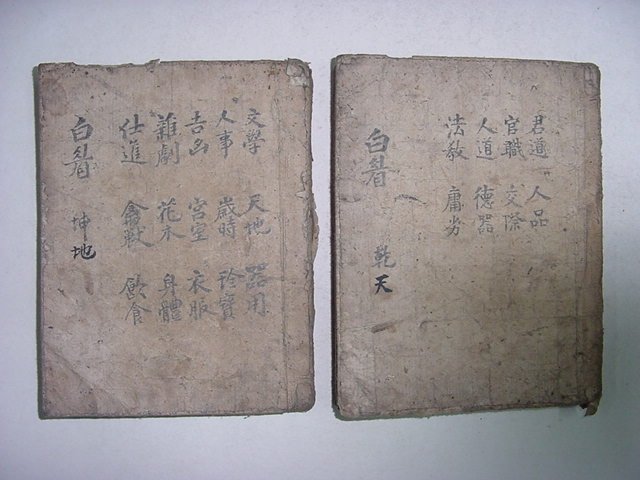 君道 人品
官職 交際
人道 德器
法教 庸劣
白眉 乾天
文學 天地 器用
人事 歲時 珍寶
吉凶 宮室 衣服
雜劇 花木 身體
仕進 禽獸 飲食
白眉 坤地